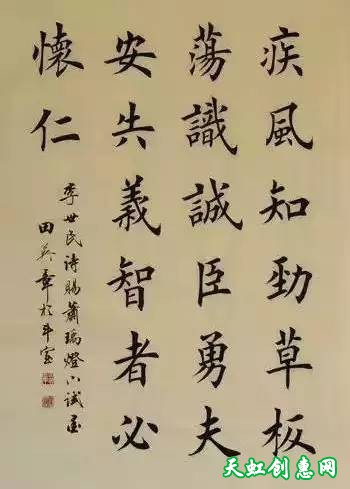 疾風知勁草板
蕩識誠臣勇夫
安義智者必
懷仁
李世民詩賜蕭瑀燈下試墨
田英章於斗室
天虹创惠网